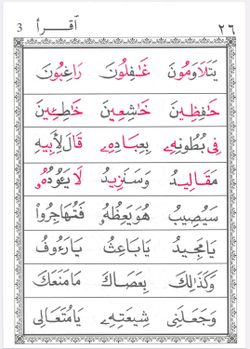 ٢٦ اقرأ 3
يَتَلَاوَمُونَ غَٰفِلُونَ رَاغِبُونَ
حَٰفِظِينَ خَٰشِعِينَ خَٰطِـِٔينَ
فِى بُطُونِهِۦ بِعِبَادِهِۦ قَالَ لِأَبِيهِ
مَقَالِيدُ وَسَنَزِيدُ لَا يَـُٔودُهُۥ
سَيُصِيبُ هُوَ يَعِظُهُۥ فَتُهَاجِرُوا۟
يَا مَجِيدُ يَا بَاعِثُ يَا رَءُوفُ
وَكَذَٰلِكَ بِعَصَاكَ مَا مَنَعَكَ
وَجَعَلَنِى شِيعَتِهِۦ يَا مُتَعَالِى